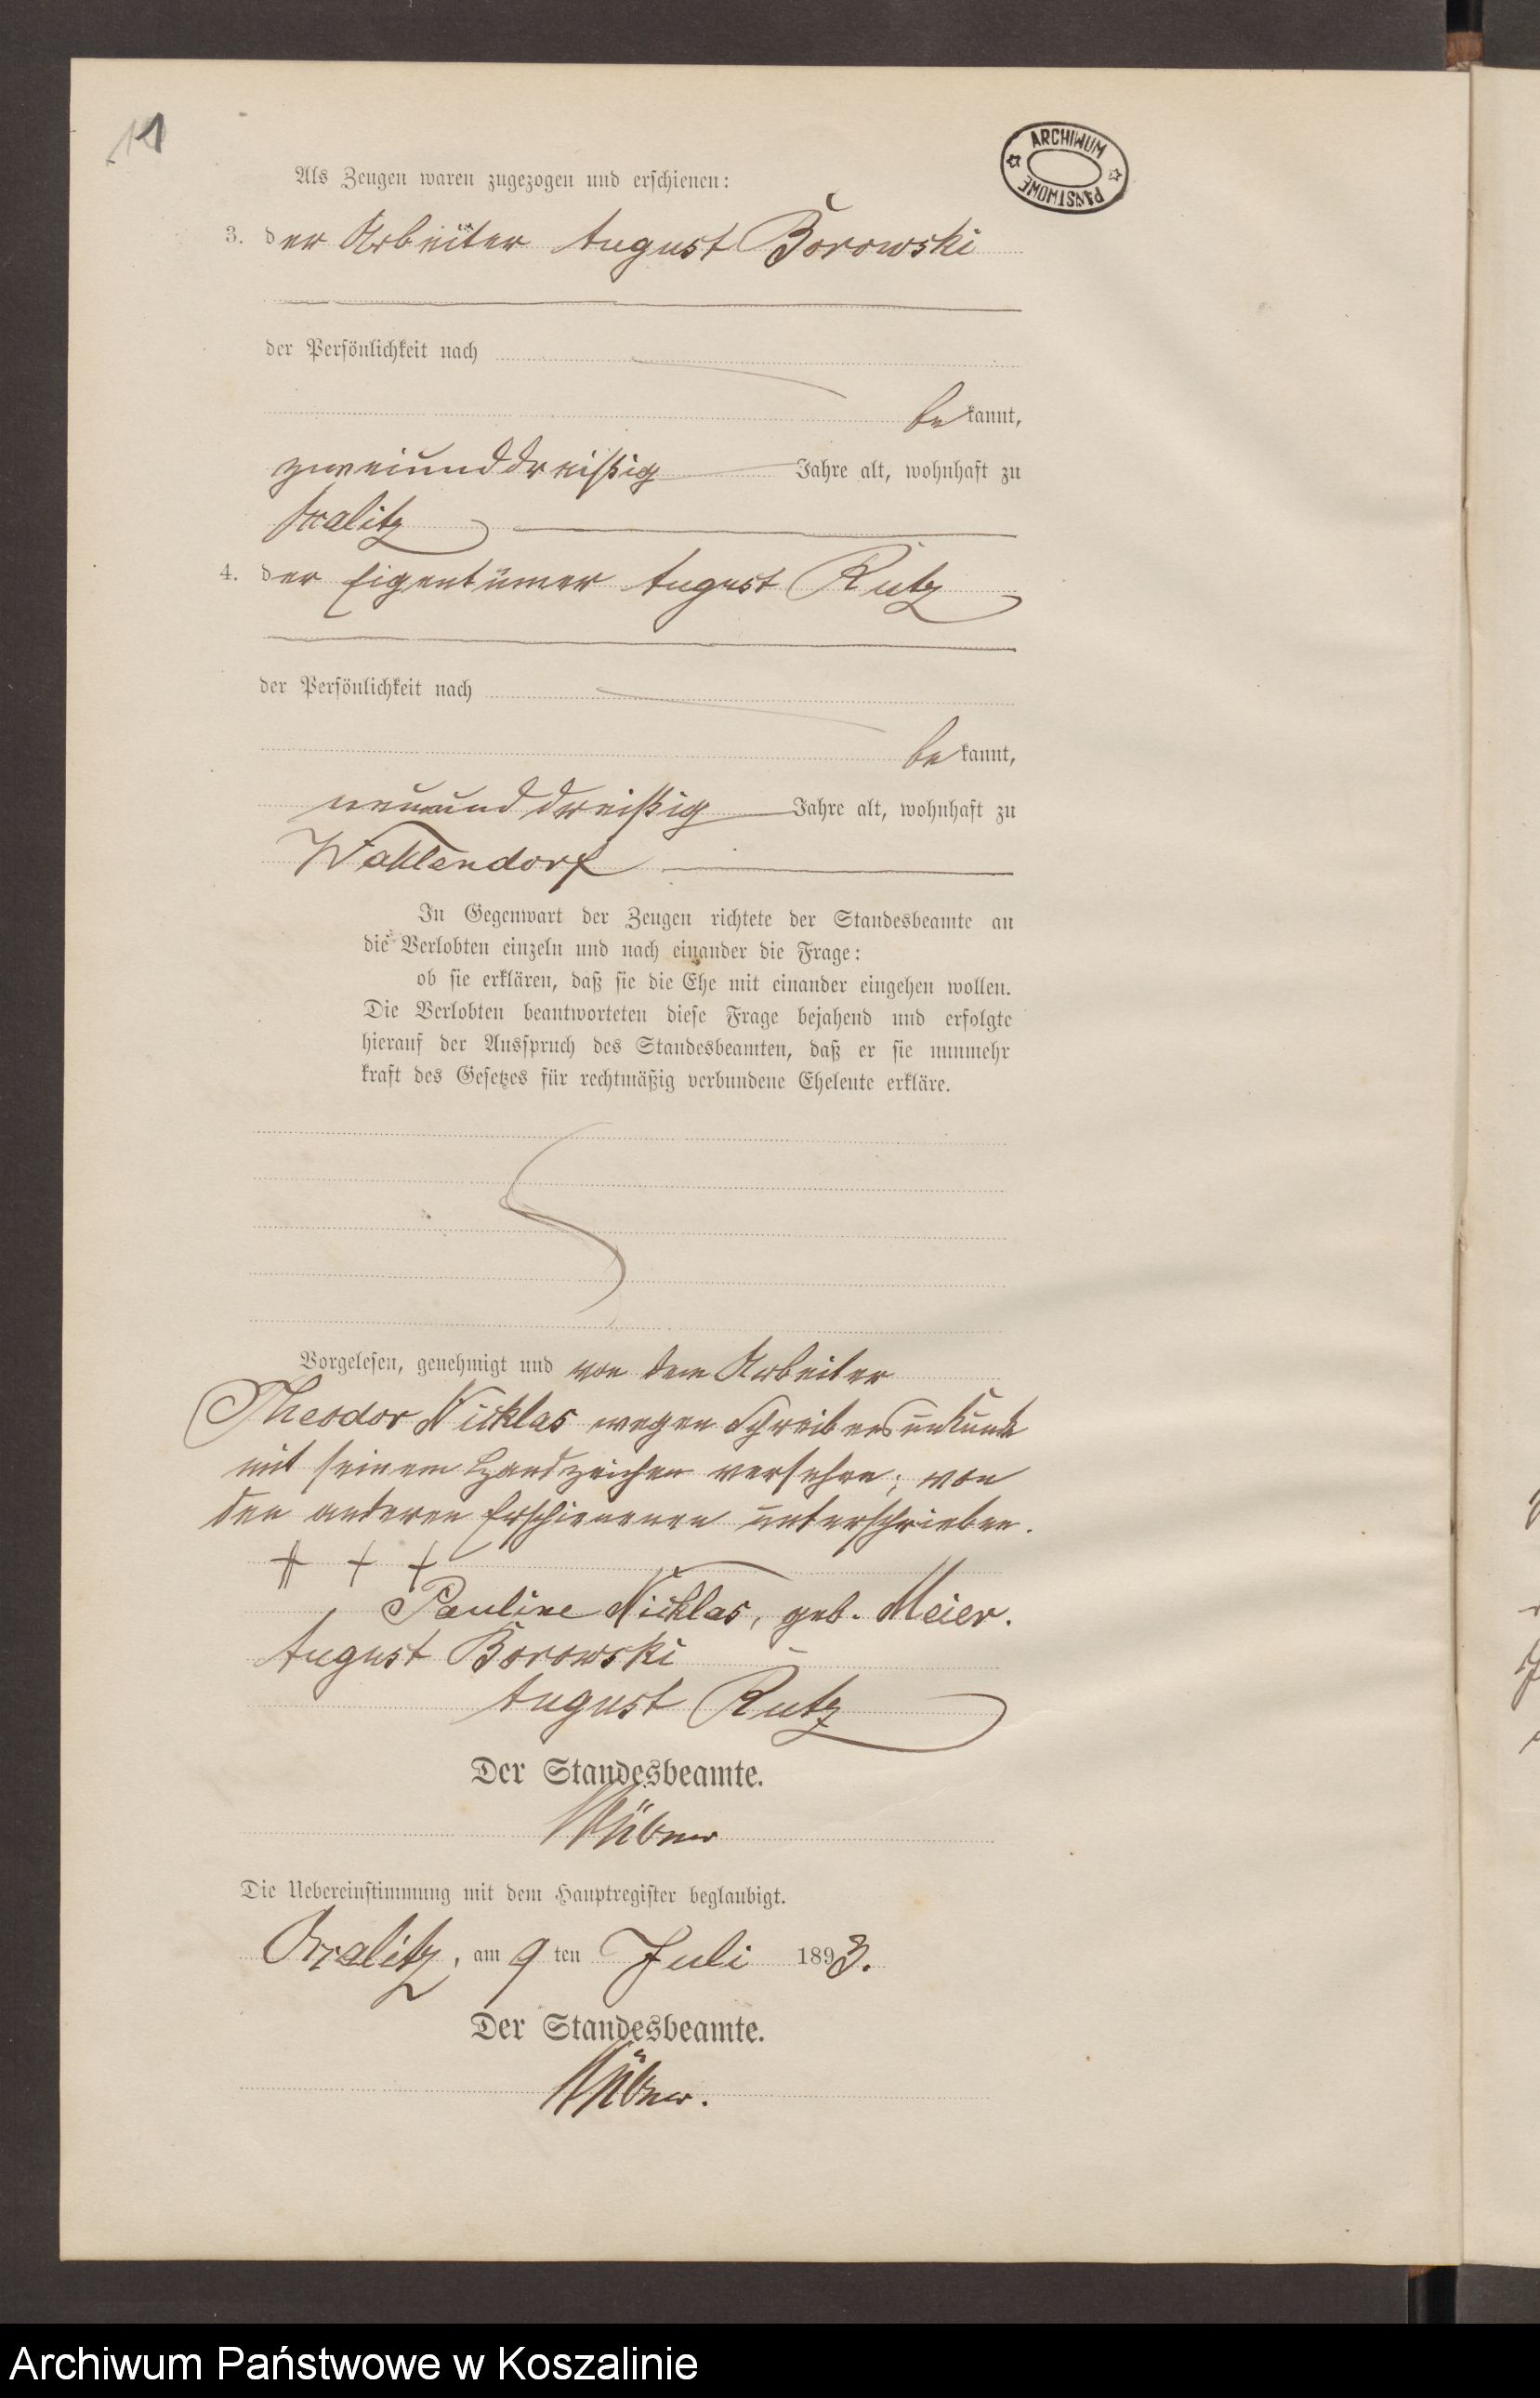 11
ARCHIWUM
PAŃSTWOWE
Als Zeugen waren zugezogen und erschienen:
3. der Arbeiter August Borowski
der Persönlichkeit nach
bekannt,
zweiunddreißig Jahre alt, wohnhaft zu
4. der Eigentümer August Rutz
der Persönlichkeit nach
bekannt,
neunund dreißig Jahre alt, wohnhaft zu
Wahlendorf
In Gegenwart der Zeugen richtete der Standesbeamte an
die Verlobten einzeln und nach einander die Frage:
ob sie erklären, daß sie die Ehe mit einander eingehen wollen.
Die Verlobten beantworteten diese Frage bejahend und erfolgte
hierauf der Ausspruch des Standesbeamten, daß er sie nunmehr
kraft des Gesetzes für rechtmäßig verbundene Eheleute erkläre.
Vorgelesen, genehmigt und von dem Arbeiter
Theodor Nicklas wegen Schreibensunkunde
mit seinem Handzeichen versehen; von
den anderen Erschienenen unterschrieben.
+ + +
Pauline Nicklas, geb. Meier.
August Borowski
August Rutz
Der Standesbeamte.
Die Uebereinstimmung mit dem Hauptregister beglaubigt.
am 9 ten Juli 1893.
Der Standesbeamte.
Archiwum Państwowe w Koszalinie